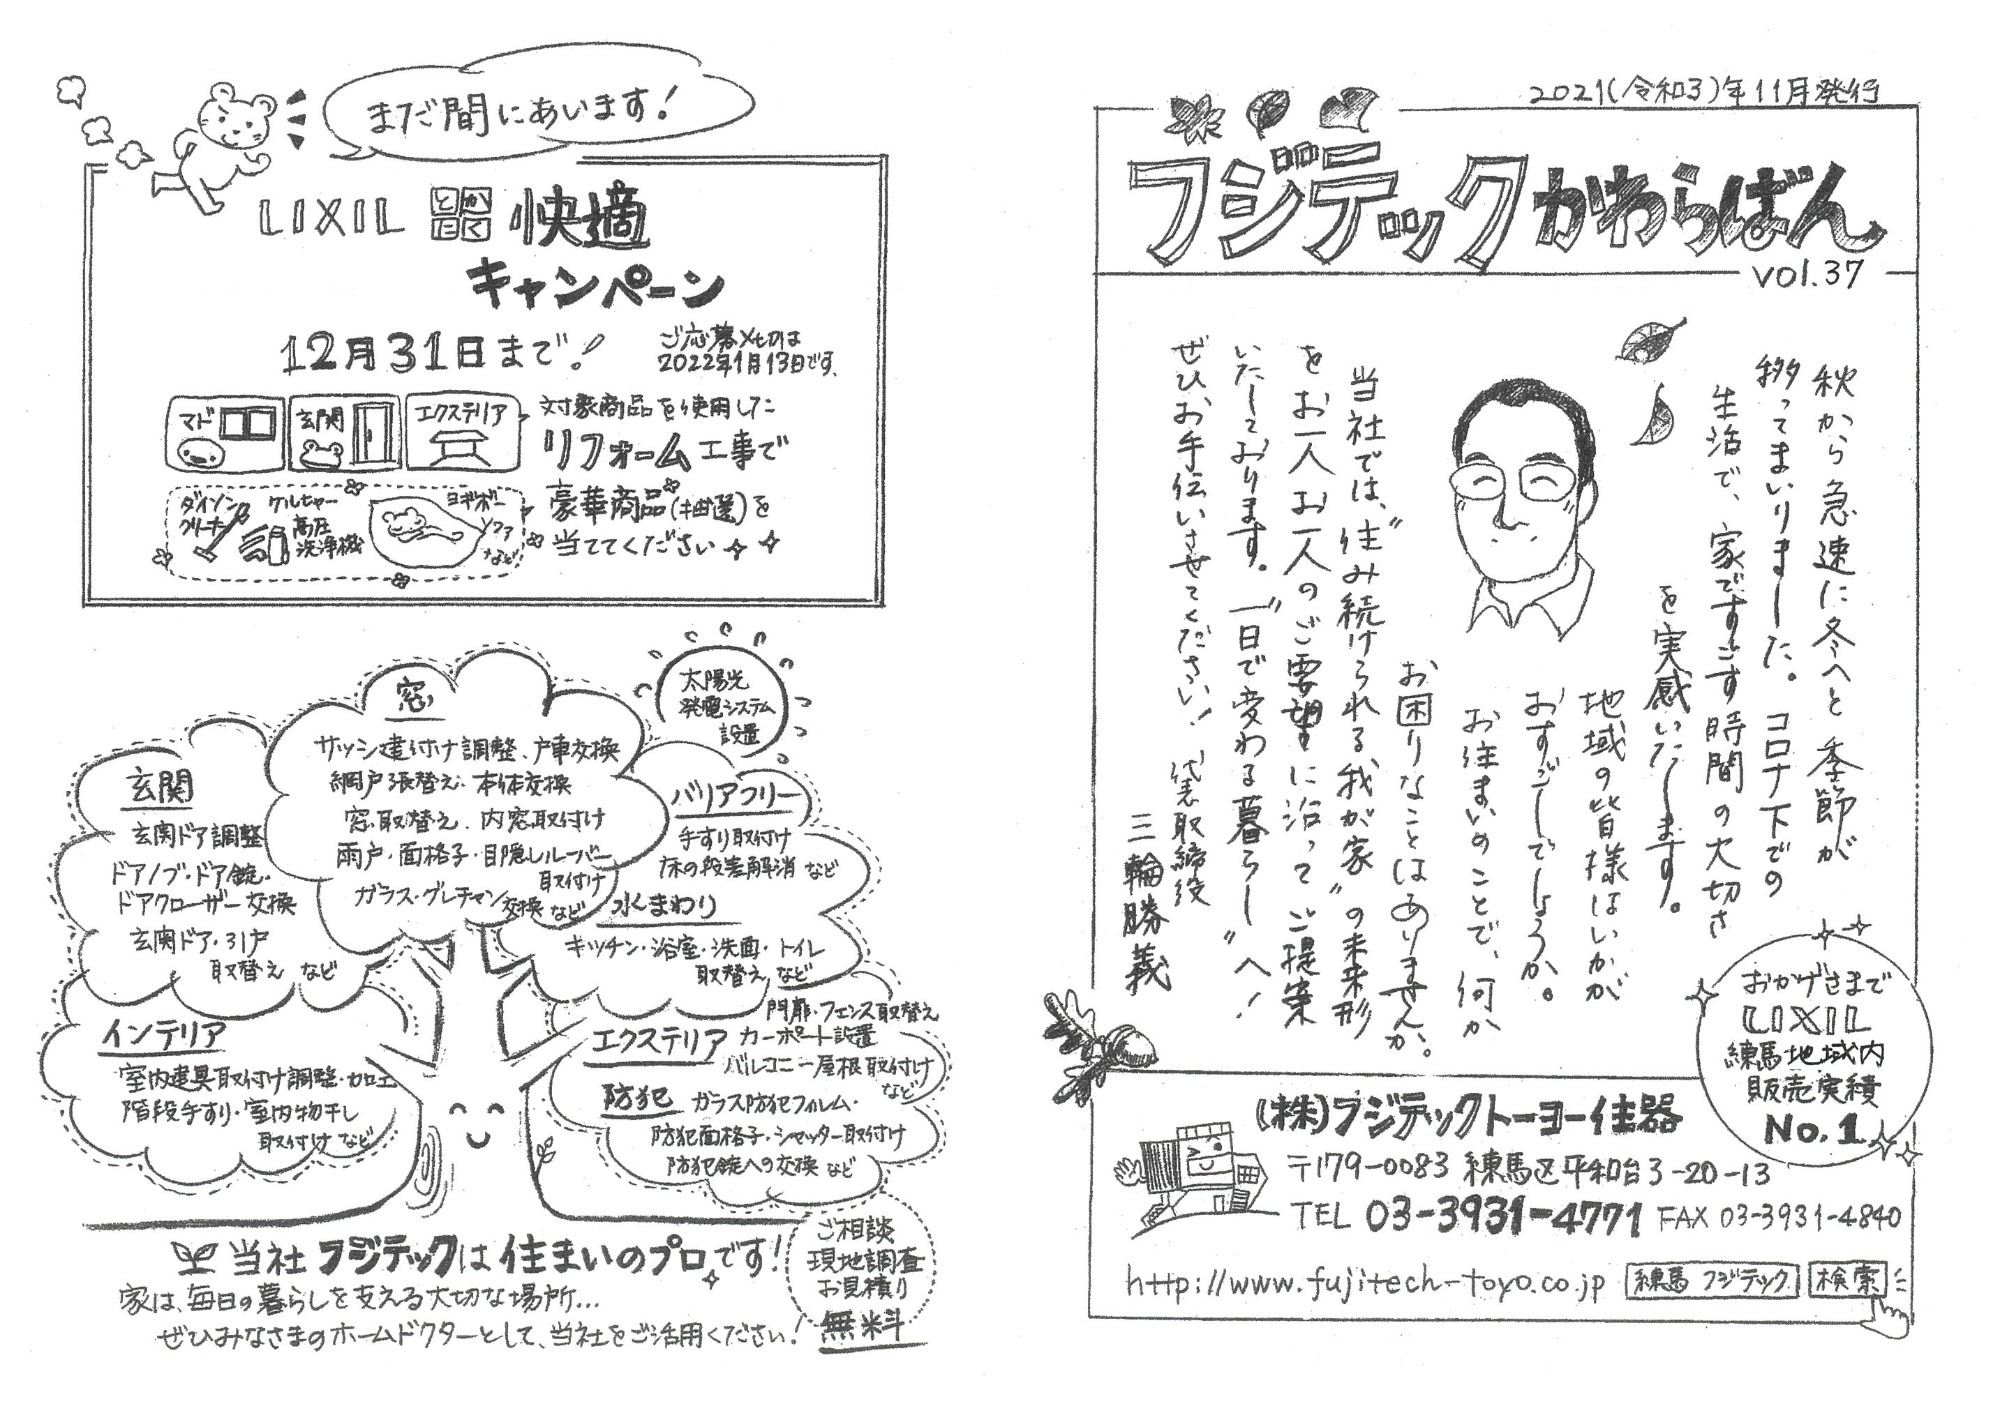 まだ間にあいます!
LIXIL とかたく 快適
キャンペーン
12月31日まで!
ご応募〆切は
2022年1月13日です。
マド
玄関
エクステリア
対象商品を使用した
リフォーム工事で
豪華商品(抽選)を
当ててください
ダイソン
クリーナー
ケルヒャー
高圧
洗浄機
ヨギボー
ソファ
など
太陽光
発電システム
設置
窓
サッシ建付け調整、戸車交換
網戸張替え、本体交換
窓取替え、内窓取付け
雨戸・面格子・目隠しルーバー
取付け
ガラス・グレチャン交換 など
玄関
玄関ドア調整
ドアノブ・ドア錠・
ドアクローザー交換
玄関ドア・引戸
取替え など
バリアフリー
手すり取付け
床の段差解消 など
水まわり
キッチン・浴室・洗面・トイレ
取替え など
インテリア
室内建具取付け調整・加工
階段手すり・室内物干し
取付け など
門扉・フェンス取替え
エクステリア カーポート設置
バルコニー屋根取付け
など
防犯 ガラス防犯フィルム・
防犯面格子・シャッター取付け
防犯錠への交換 など
当社フジテックは住まいのプロです!
家は、毎日の暮らしを支える大切な場所…
ぜひみなさまのホームドクターとして、当社をご活用ください!
ご相談
現地調査
お見積り
無料
2021(令和3)年11月発行
フジテックかわらばん
vol.37
秋から急速に冬へと季節が
移ってまいりました。コロナ下での
生活で、家ですごす時間の大切さ
を実感いたします。
地域の皆様はいかが
おすごしでしょうか。
お住まいのことで、何か
お困りなことはありませんか。
当社では、“住み続けられる我が家”の未来形
をお一人お一人のご要望に沿ってご提案
いたしております。“一日で変わる暮らし”へ!
ぜひお手伝いさせてください!
代表取締役
三輪勝義
おかげさまで
LIXIL
練馬地域内
販売実績
No.1
(株)フジテックトーヨー住器
〒179-0083 練馬区平和台3-20-13
TEL 03-3931-4771 FAX 03-3931-4840
http://www.fujitech-toyo.co.jp 練馬 フジテック 検索